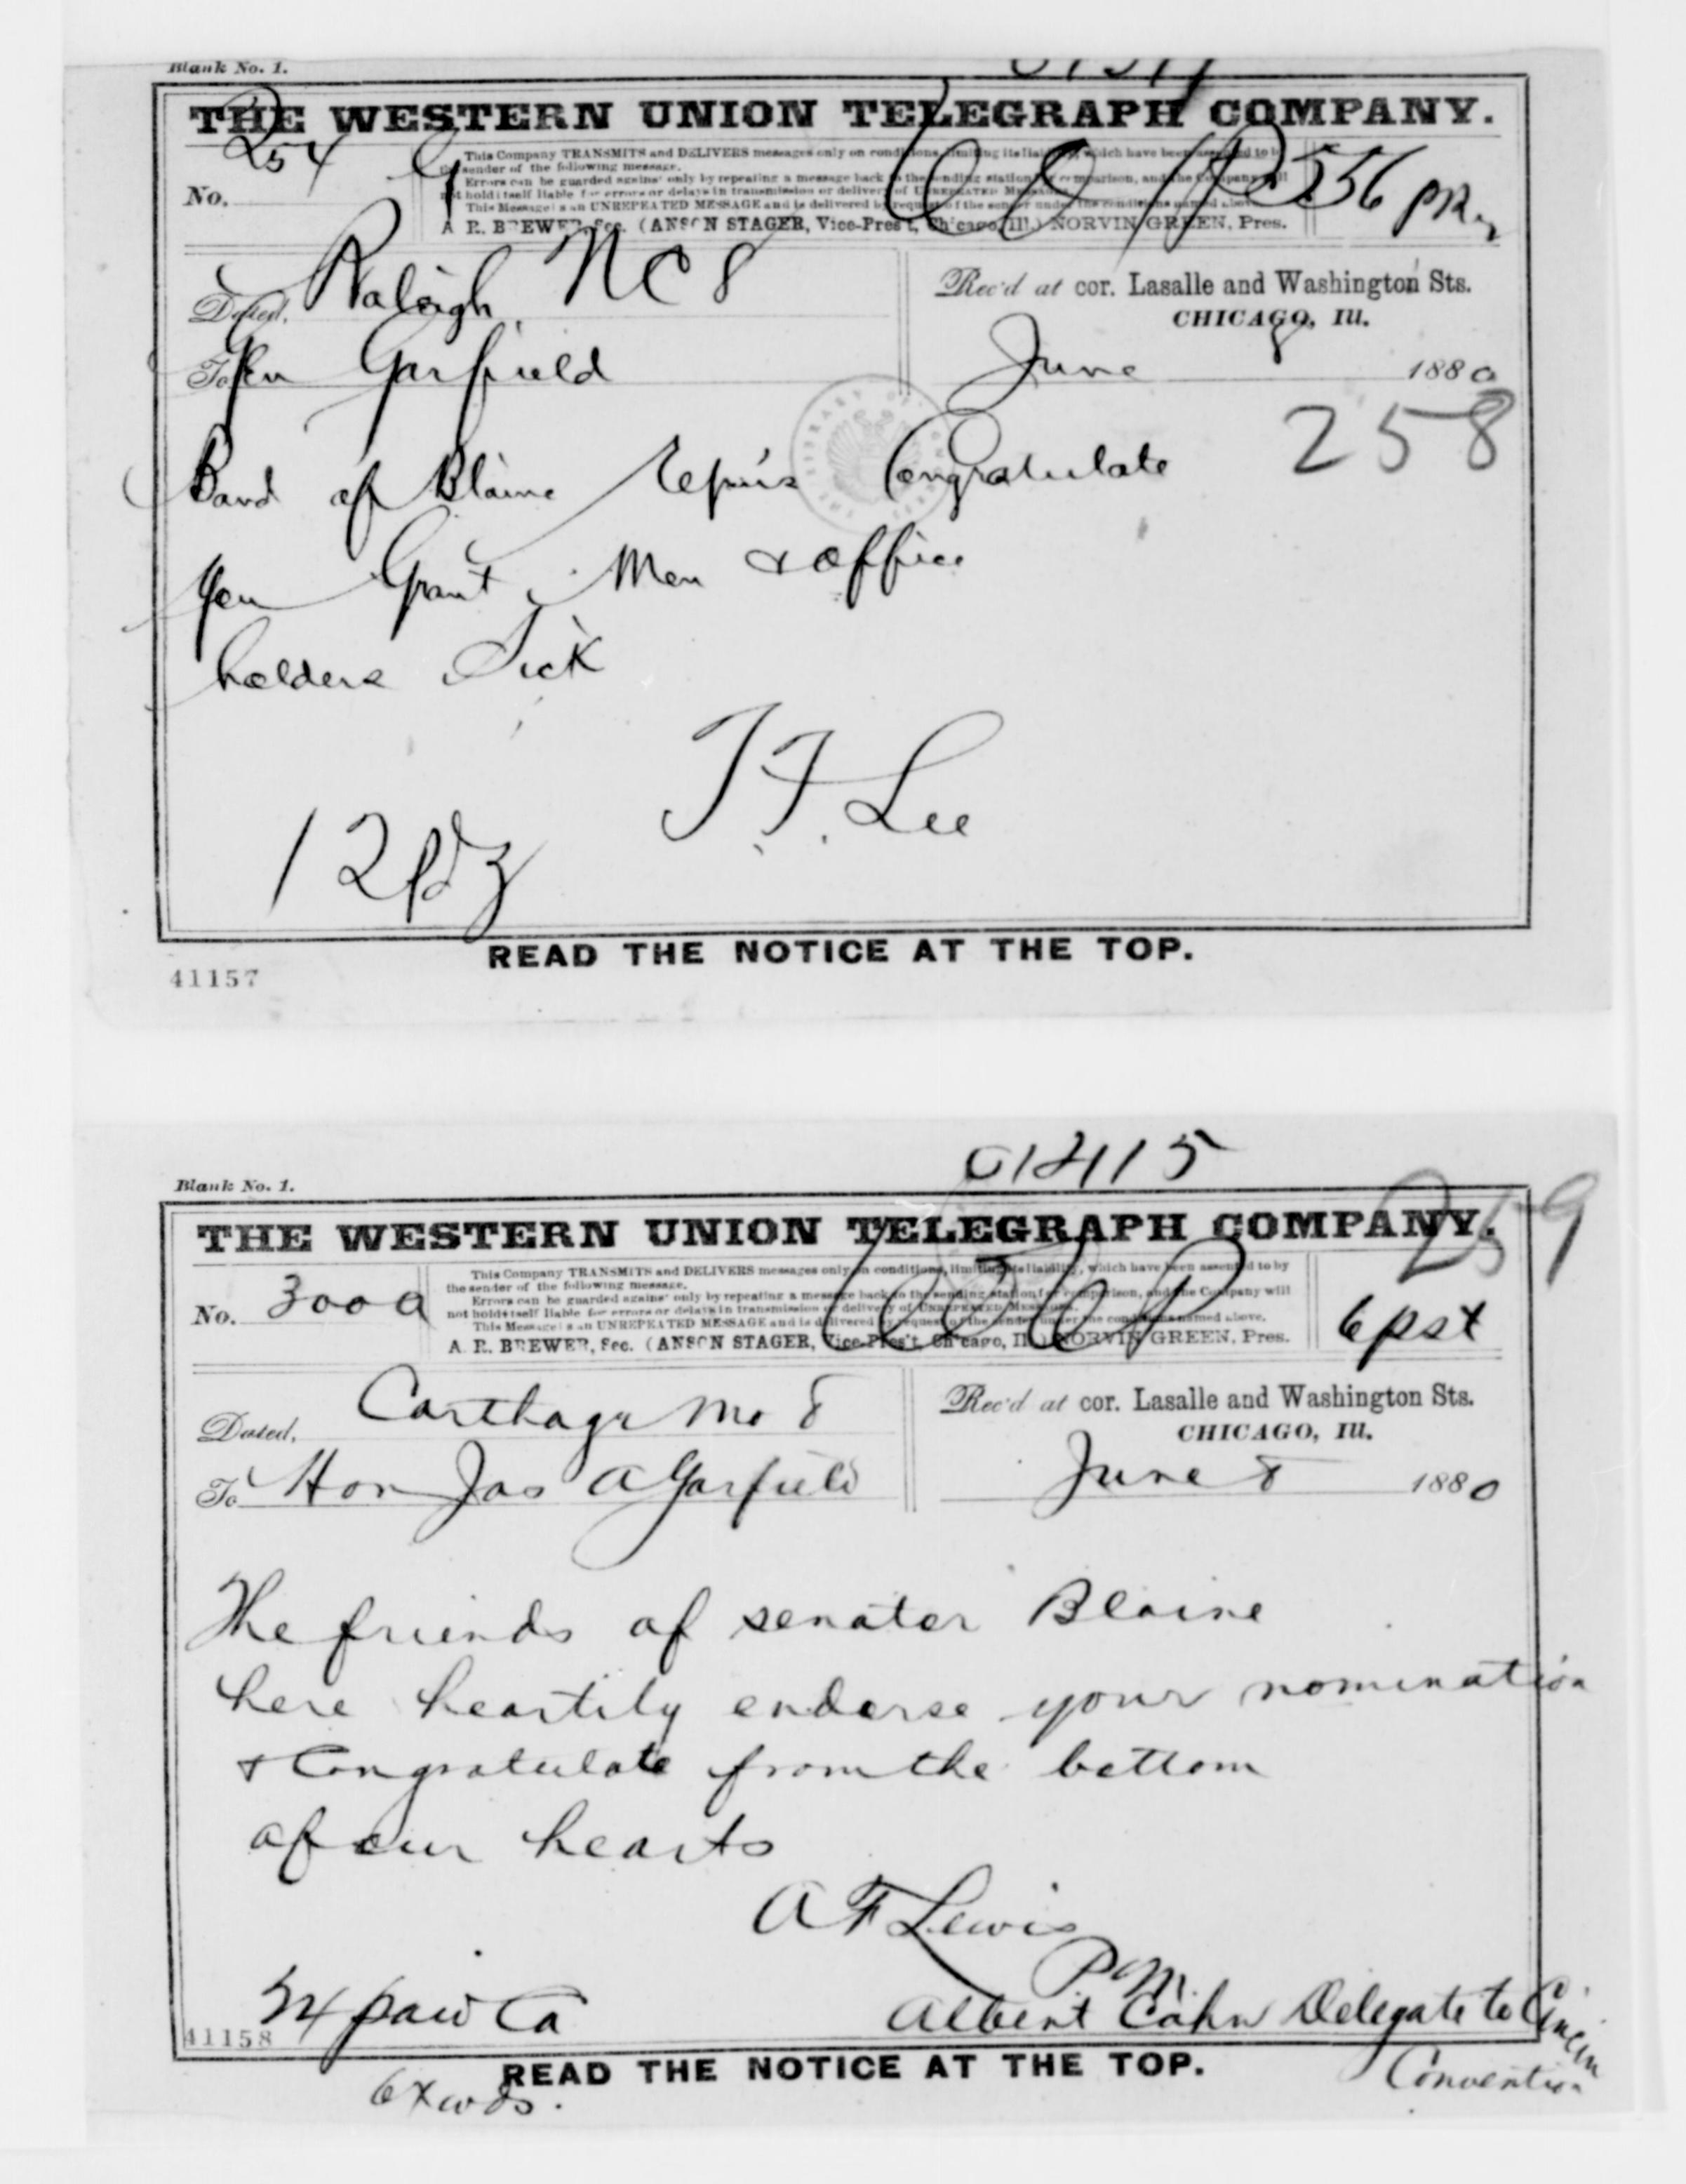 Blank No. 1.
THE WESTERN UNION TELEGRAPH COMPANY.
No. 254
This Company TRANSMITS and DELIVERS messages only on conditions, limiting its liability, which have been assented to by
the sender of the following message.
Errors can be guarded against only by repeating a message back to the sending station for comparison, and the Company will
not hold itself liable for errors or delays in transmission or delivery of UNREPEATED MESSAGES.
This Message is an UNREPEATED MESSAGE and is delivered by request of the sender under the conditions named above.
A. R. BREWER, Sec. (ANSON STAGER, Vice-Pres't, Chicago, Ill.) NORVIN GREEN, Pres.
556
Dated, Raleigh NC 8
Rec'd at cor. Lasalle and Washington Sts.
CHICAGO, Ill.
To Gen Garfield
June 8 1880
258
Band of Blaine Congratulate
you Grant Men & office
holders Sick
T. F. Lee
12
READ THE NOTICE AT THE TOP.
41157
01415
Blank No. 1.
259
THE WESTERN UNION TELEGRAPH COMPANY.
No. 300 a
This Company TRANSMITS and DELIVERS messages only on conditions, limiting its liability, which have been assented to by
the sender of the following message.
Errors can be guarded against only by repeating a message back to the sending station for comparison, and the Company will
not hold itself liable for errors or delays in transmission or delivery of UNREPEATED MESSAGES.
This Message is an UNREPEATED MESSAGE and is delivered by request of the sender under the conditions named above.
A. R. BREWER, Sec. (ANSON STAGER, Vice-Pres't, Chicago, Ill.) NORVIN GREEN, Pres.
6 pst
Dated, Carthage Mo 8
Rec'd at cor. Lasalle and Washington Sts.
CHICAGO, Ill.
To Hon Jas A Garfield
June 8 1880
The friends of senator Blaine
here heartily endorse your nomination
& Congratulate from the bottom
of our hearts
A F Lewis
P M.
Albert Cahn Delegate to Cincin
Convention
24 paid Ca
41158
READ THE NOTICE AT THE TOP.
6 x wds.